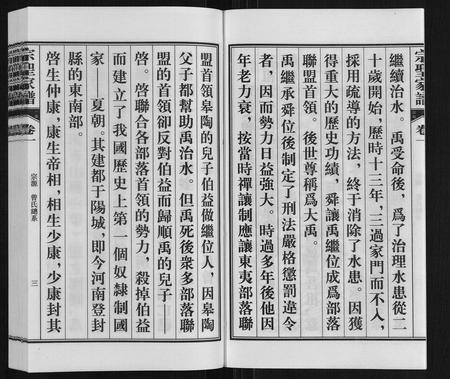 宗聖家譜
卷
繼續治水。禹受命後，爲了治理水患從二
十歲開始，歷時十三年，三過家門而不入，
採用疏導的方法，終于消除了水患。因獲
得重大的歷史功績，舜讓禹繼位成爲部落
聯盟首領。後世尊稱爲大禹。
禹繼承舜位後制定了刑法嚴格懲罰違令
者，因而勢力日益強大。時過多年後他因
年老力衰，按當時禪讓制應讓東夷部落聯
盟首領皋陶的兒子伯益做繼位人，因皋陶
父子都幫助禹治水。但禹死後衆多部落聯
盟的首領卻反對伯益而歸順禹的兒子——
啓。啓聯合各部落首領的勢力，殺掉伯益
而建立了我國歷史上第一個奴隸制國
家——夏朝。其建都于陽城，即今河南登封
縣的東南部。
啓生仲康，康生帝相，相生少康，少康封其
宗聖家譜
卷
宗源 曾氏總系
三